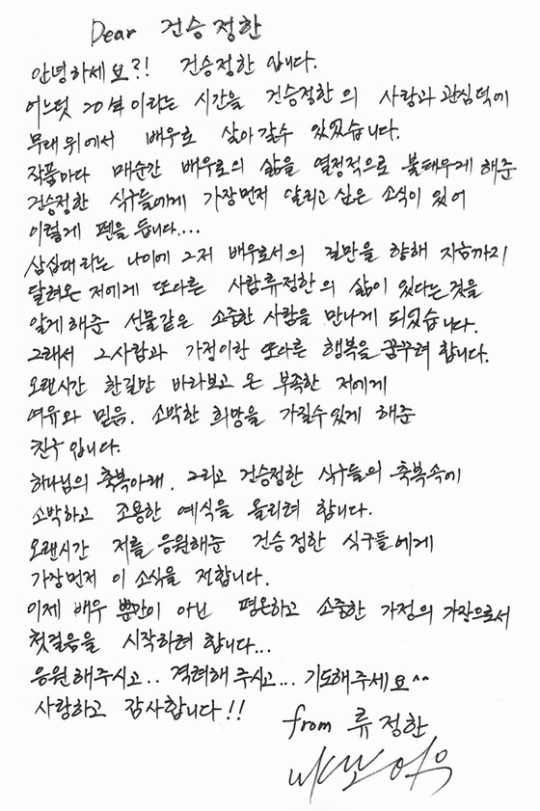 Dear 건승정한
안녕하세요?! 건승정한 입니다.
어느덧 20년이라는 시간을 건승정한의 사랑과 관심덕에
무대위에서 배우로 살아갈수 있었습니다.
작품마다 매순간 배우로의 삶을 열정적으로 불태우게 해준
건승정한 식구들에게 가장먼저 알리고 싶은 소식이 있어
이렇게 펜을 듭니다....
삼십대라는 나이에 그저 배우로서의 길만을 향해 지금까지
달려온 저에게 또다른 사람류정한의 삶이 있다는것을
알게해준 선물같은 소중한 사람을 만나게 되었습니다.
그래서 그사람과 가정이란 또다른 행복을 꿈꾸려 합니다.
오랜시간 한길만 바라보고 온 부족한 저에게
여유와 믿음. 소박한 희망을 가질수있게 해준
친구입니다.
하나님의 축복아래, 그리고 건승정한 식구들의 축복속에
소박하고 조용한 예식을 올리려 합니다.
오랜시간 저를 응원해준 건승정한 식구들에게
가장먼저 이 소식을 전합니다.
이제 배우 뿐만이 아닌 평온하고 소중한 가정의 가장으로서
첫걸음을 시작하려 합니다...
응원해주시고.. 격려해주시고... 기도해주세요^^
사랑하고 감사합니다!!
from 류정한